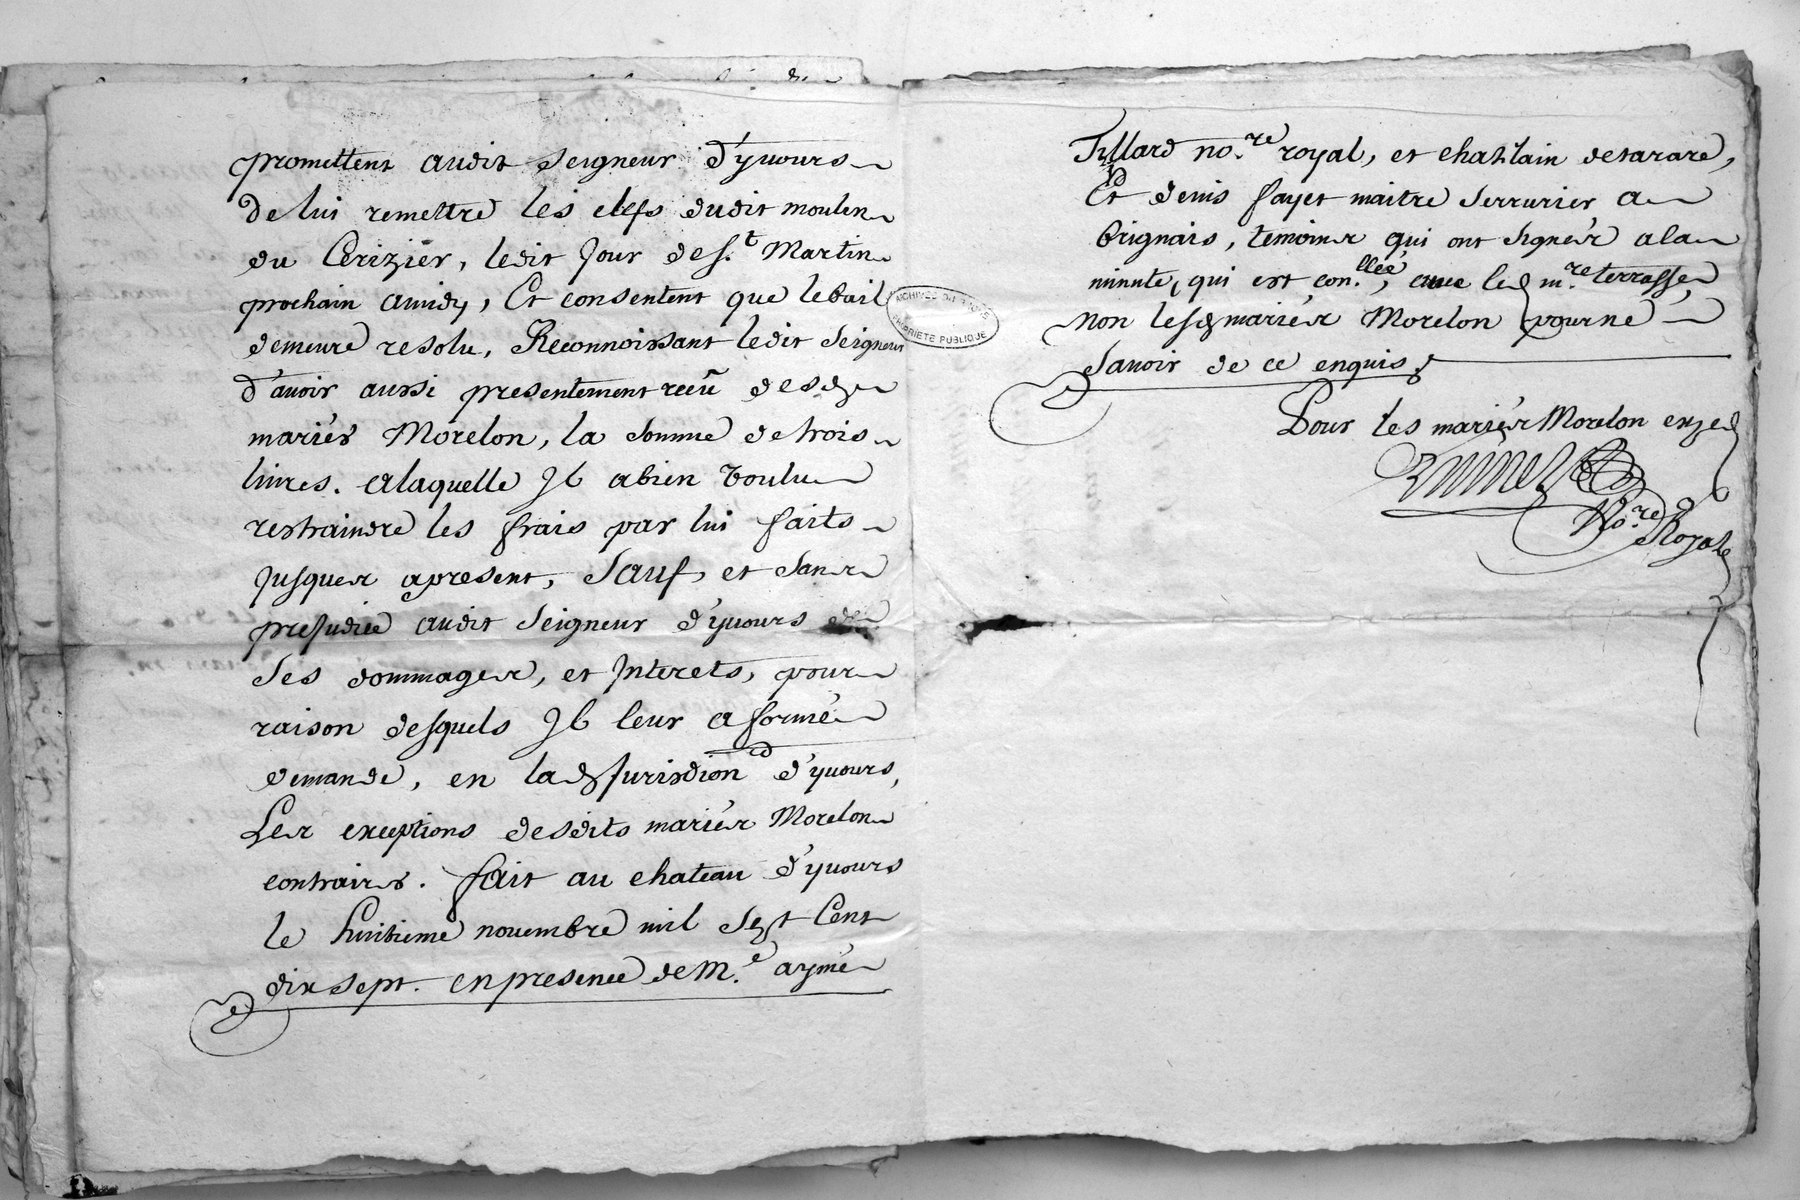 promettent audit seigneur d'yuours
de lui remettre les clefs dudit moulin
du Cerizier, ledit Jour de St. Martin
prochain amidy, Et consentent que lebail
demeure resolu, Reconnoissant ledit Seigneur
d'avoir aussi presentement receu desd
mariés Morelon, la somme detrois
livres. alaquelle Jl abien voulu
restraindre les frais par lui faits
Jusques apresent, Sauf, et Sans
preJudice audit Seigneur d'yuours de
ses dommages, et Jnterets, pour
raison desquels Jl leur a formé
demande, en lad Jurisdion d'yuours,
Les exceptions desdits mariés Morelon
contraires. fait au chateau d'yuours
le huitieme novembre mil sept Cent
dix sept. en presence de Me. aymé
ARCHIVES DU RHÔNE
PROPRIETE PUBLIQUE
Tillard no.re royal, et chatelain detarare,
Et denis fayet maitre Serrurier a
brignais, temoins qui ont signés ala
minute, qui est con.llée, avec led m.re terrasse
non lesd mariés Morelon pour ne
savoir de ce enquis
Pour les mariés Morelon exped
No.re Royal